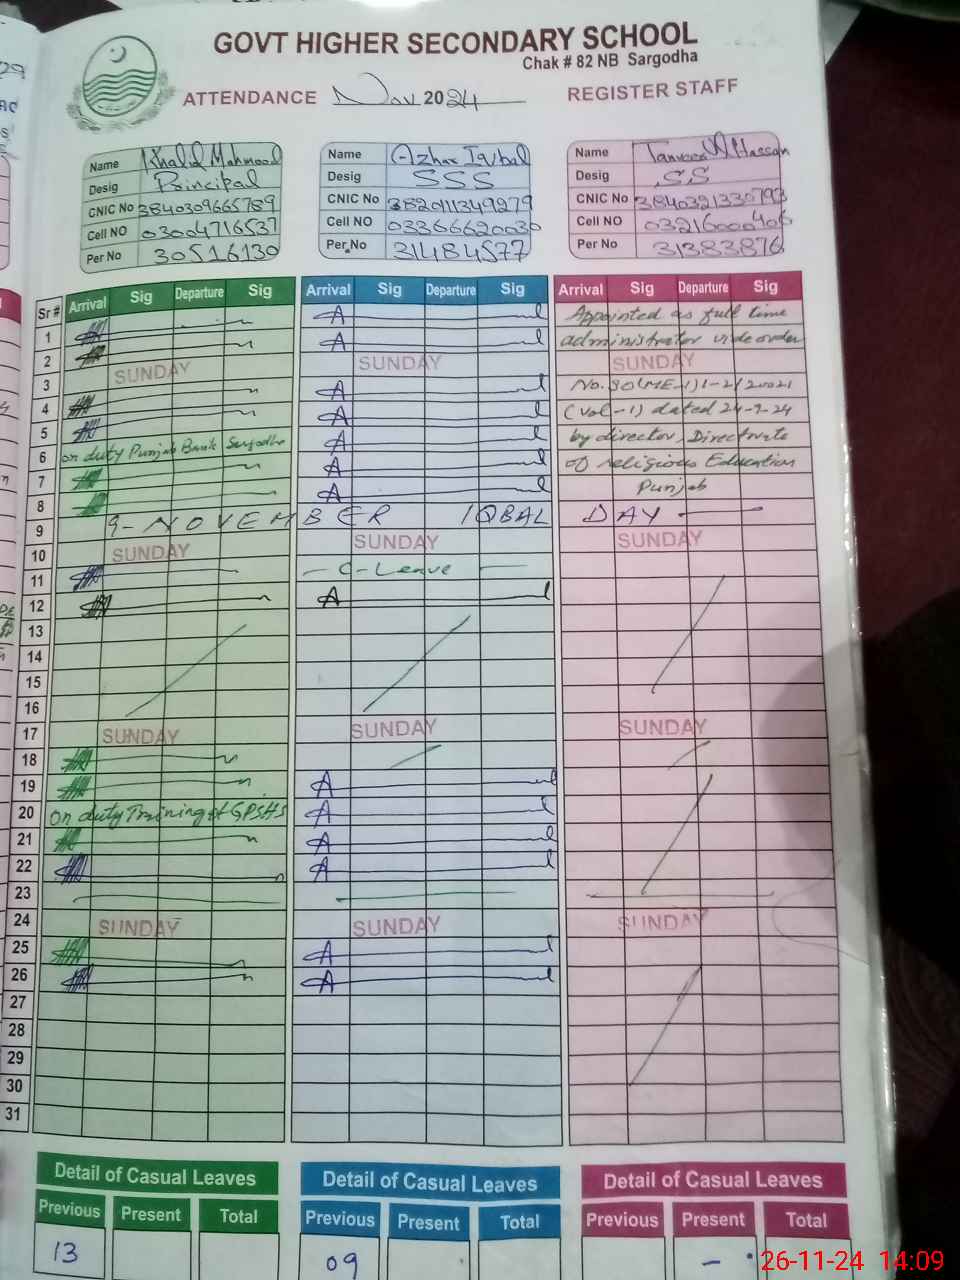 GOVT HIGHER SECONDARY SCHOOL
Chak # 82 NB Sargodha
ATTENDANCE Nov 2024 REGISTER STAFF
Name Khalid Mahmood
Desig Principal
CNIC No 3840309665789
Cell NO 03004716537
Per No 30516130
Name Azhar Iqbal
Desig SSS
CNIC No 3820111349279
Cell NO 03366620030
Per.No 31484577
Name Tanveer Ul Hassan
Desig S.S
CNIC No 3840321330793
Cell NO 03216000406
Per No 31383876
Sr # Arrival Sig Departure Sig Arrival Sig Departure Sig Arrival Sig Departure Sig
1 A Appointed as full time
2 A administrator vide order
3 SUNDAY SUNDAY SUNDAY
4 A No. SO(ME-1)1-2/2021
5 A (Vol-1) dated 24-9-24
6 on duty Punjab Bank Sargodha A by director, Directorate
7 A of religious Education
8 A Punjab
9 9-NOVEMBER IQBAL DAY
10 SUNDAY SUNDAY SUNDAY
11 C-Leave
12 A
13
14
15
16
17 SUNDAY SUNDAY SUNDAY
18
19 A
20 on duty Training at GPSHS A
21 A
22 A
23
24 SUNDAY SUNDAY SUNDAY
25 A
26 A
27
28
29
30
31
Detail of Casual Leaves Detail of Casual Leaves Detail of Casual Leaves
Previous Present Total Previous Present Total Previous Present Total
13 09 -
26-11-24 14:09